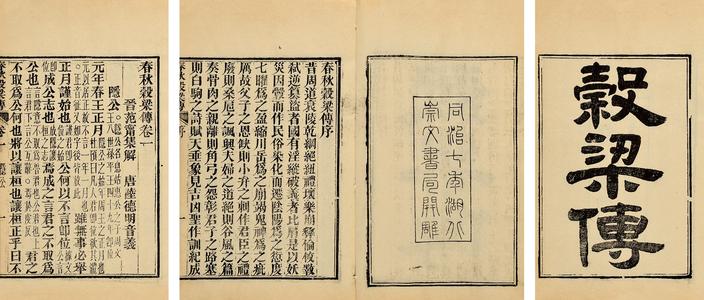 穀梁傳
同治七年湖北
崇文書局開雕
春秋穀梁傳序
昔周道衰陵乾綱絕紐禮壞樂崩彝倫攸斁
弒逆篡盜者國有淫縱破義者比肩是以妖
災因釁而作民俗染化而遷陰陽為之愆度
七曜為之盈縮川岳為之崩竭鬼神為之疵
厲故父子之恩缺則小弁之刺作君臣之禮
廢則桑扈之諷興夫婦之道絕則谷風之篇
奏骨肉之親離則角弓之怨彰君子之路塞
則白駒之詩賦天垂象見吉凶聖作訓紀成
春秋穀梁傳 序 一
春秋穀梁傳卷一
晉范甯集解 唐陸德明音義
隱公
元年春王正月 雖無事必舉
正月謹始也 公何以不言即位
成公志也 焉成之言君之不取為
公也 君之
不取為公何也將以讓桓也讓桓正乎曰不
春秋穀梁傳 卷一 一